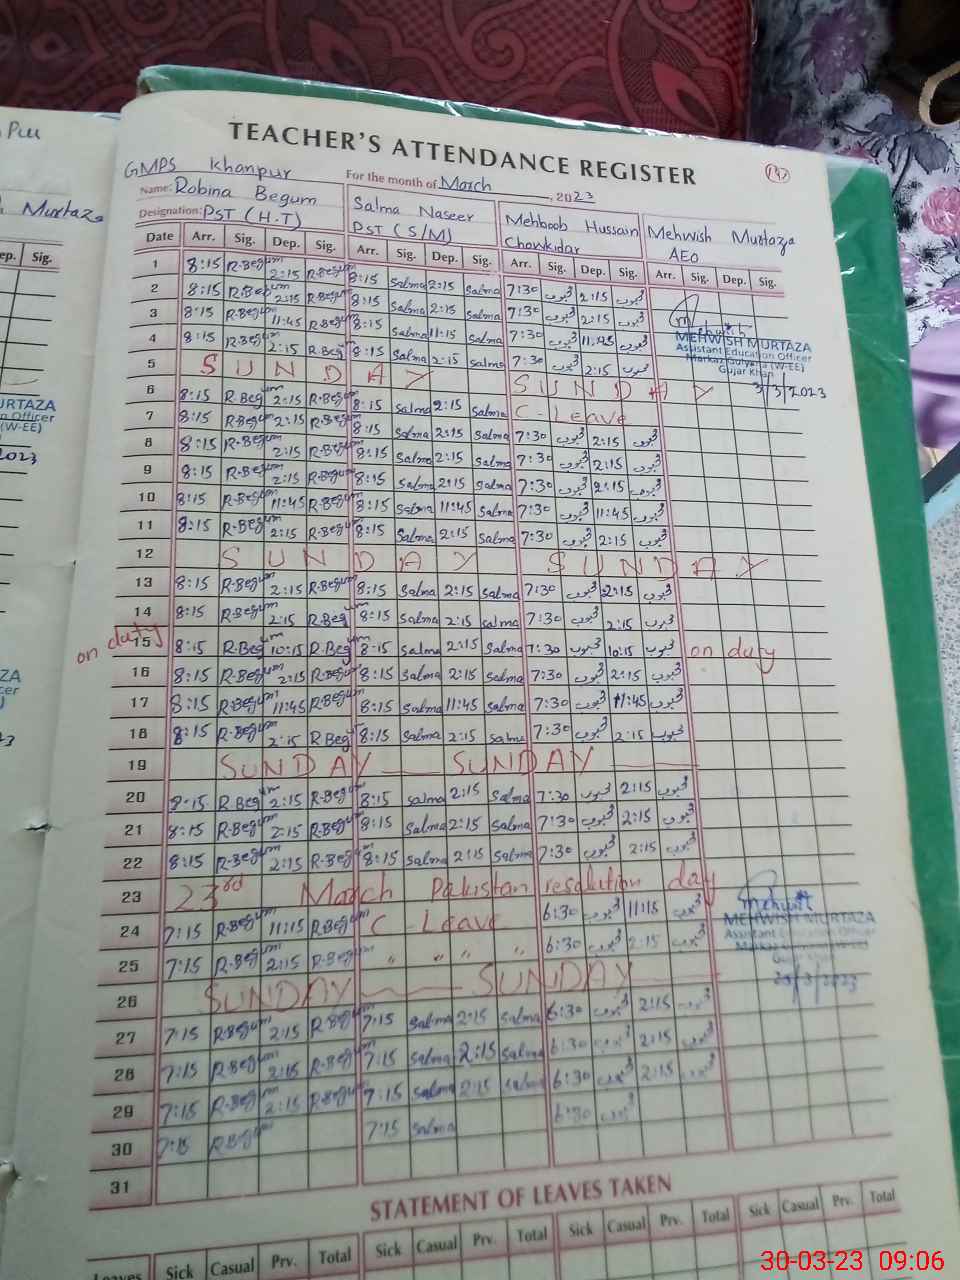 Pur
Murtaza
ep. Sig.
URTAZA
n Officer
(W-EE)
2023
TEACHER'S ATTENDANCE REGISTER
GMPS Khanpur
For the month of March, 2023
Name: Robina Begum Salma Naseer Mehboob Hussain Mehwish Murtaza
Designation: PST (H.T) PST (S/M) Chowkidar AEO
Date Arr. Sig. Dep. Sig. Arr. Sig. Dep. Sig. Arr. Sig. Dep. Sig. Arr. Sig. Dep. Sig.
1 8:15 R.Begum 2:15 R.Begum 8:15 Salma 2:15 Salma 7:30 محبوب 2:15 محبوب
2 8:15 R.Begum 2:15 R.Begum 8:15 Salma 2:15 Salma 7:30 محبوب 2:15 محبوب
3 8:15 R.Begum 11:45 R.Begum 8:15 Salma 11:15 Salma 7:30 محبوب 11:45 محبوب
4 8:15 R.Beg 2:15 R.Beg 8:15 Salma 2:15 Salma 7:30 محبوب 2:15 محبوب
MEHWISH MURTAZA
Assistant Education Officer
Markaz Gulyana (W-EE)
Gujar Khan
3/3/2023
5 SUNDAY SUNDAY
6 8:15 R.Begum 2:15 R.Begum 8:15 Salma 2:15 Salma C-Leave
7 8:15 R.Begum 2:15 R.Begum 8:15 Salma 2:15 Salma 7:30 محبوب 2:15 محبوب
8 8:15 R.Begum 2:15 R.Begum 8:15 Salma 2:15 Salma 7:30 محبوب 2:15 محبوب
9 8:15 R.Begum 2:15 R.Begum 8:15 Salma 2:15 Salma 7:30 محبوب 2:15 محبوب
10 8:15 R.Begum 11:45 R.Begum 8:15 Salma 11:45 Salma 7:30 محبوب 11:45 محبوب
11 8:15 R.Begum 2:15 R.Begum 8:15 Salma 2:15 Salma 7:30 محبوب 2:15 محبوب
12 SUNDAY SUNDAY
13 8:15 R.Begum 2:15 R.Begum 8:15 Salma 2:15 Salma 7:30 محبوب 2:15 محبوب
14 8:15 R.Begum 2:15 R.Begum 8:15 Salma 2:15 Salma 7:30 محبوب 2:15 محبوب
on duty 15 8:15 R.Begum 10:15 R.Begum 8:15 Salma 2:15 Salma 7:30 محبوب 10:15 محبوب on duty
16 8:15 R.Begum 2:15 R.Begum 8:15 Salma 2:15 Salma 7:30 محبوب 2:15 محبوب
17 8:15 R.Begum 11:45 R.Begum 8:15 Salma 11:45 Salma 7:30 محبوب 11:45 محبوب
18 8:15 R.Begum 2:15 R.Beg 8:15 Salma 2:15 Salma 7:30 محبوب 2:15 محبوب
19 SUNDAY SUNDAY
20 8:15 R.Beg 2:15 R.Begum 8:15 Salma 2:15 Salma 7:30 محبوب 2:15 محبوب
21 8:15 R.Begum 2:15 R.Begum 8:15 Salma 2:15 Salma 7:30 محبوب 2:15 محبوب
22 8:15 R.Begum 2:15 R.Begum 8:15 Salma 2:15 Salma 7:30 محبوب 2:15 محبوب
23 23rd March Pakistan resolution day
24 7:15 R.Begum 11:15 R.Begum C Leave 6:30 محبوب 11:15 محبوب
MEHWISH MURTAZA
Assistant Education Officer
25 7:15 R.Begum 2:15 R.Begum " " " " 6:30 محبوب 2:15 محبوب
26 SUNDAY SUNDAY
27 7:15 R.Begum 2:15 R.Begum 7:15 Salma 2:15 Salma 6:30 محبوب 2:15 محبوب
28 7:15 R.Begum 2:15 R.Begum 7:15 Salma 2:15 Salma 6:30 محبوب 2:15 محبوب
29 7:15 R.Begum 2:15 R.Begum 7:15 Salma 2:15 Salma 6:30 محبوب 2:15 محبوب
30 7:15 R.Begum 7:15 Salma 6:30 محبوب
31
STATEMENT OF LEAVES TAKEN
Leaves Sick Casual Prv. Total Sick Casual Prv. Total Sick Casual Prv. Total Sick Casual Prv. Total
30-03-23 09:06